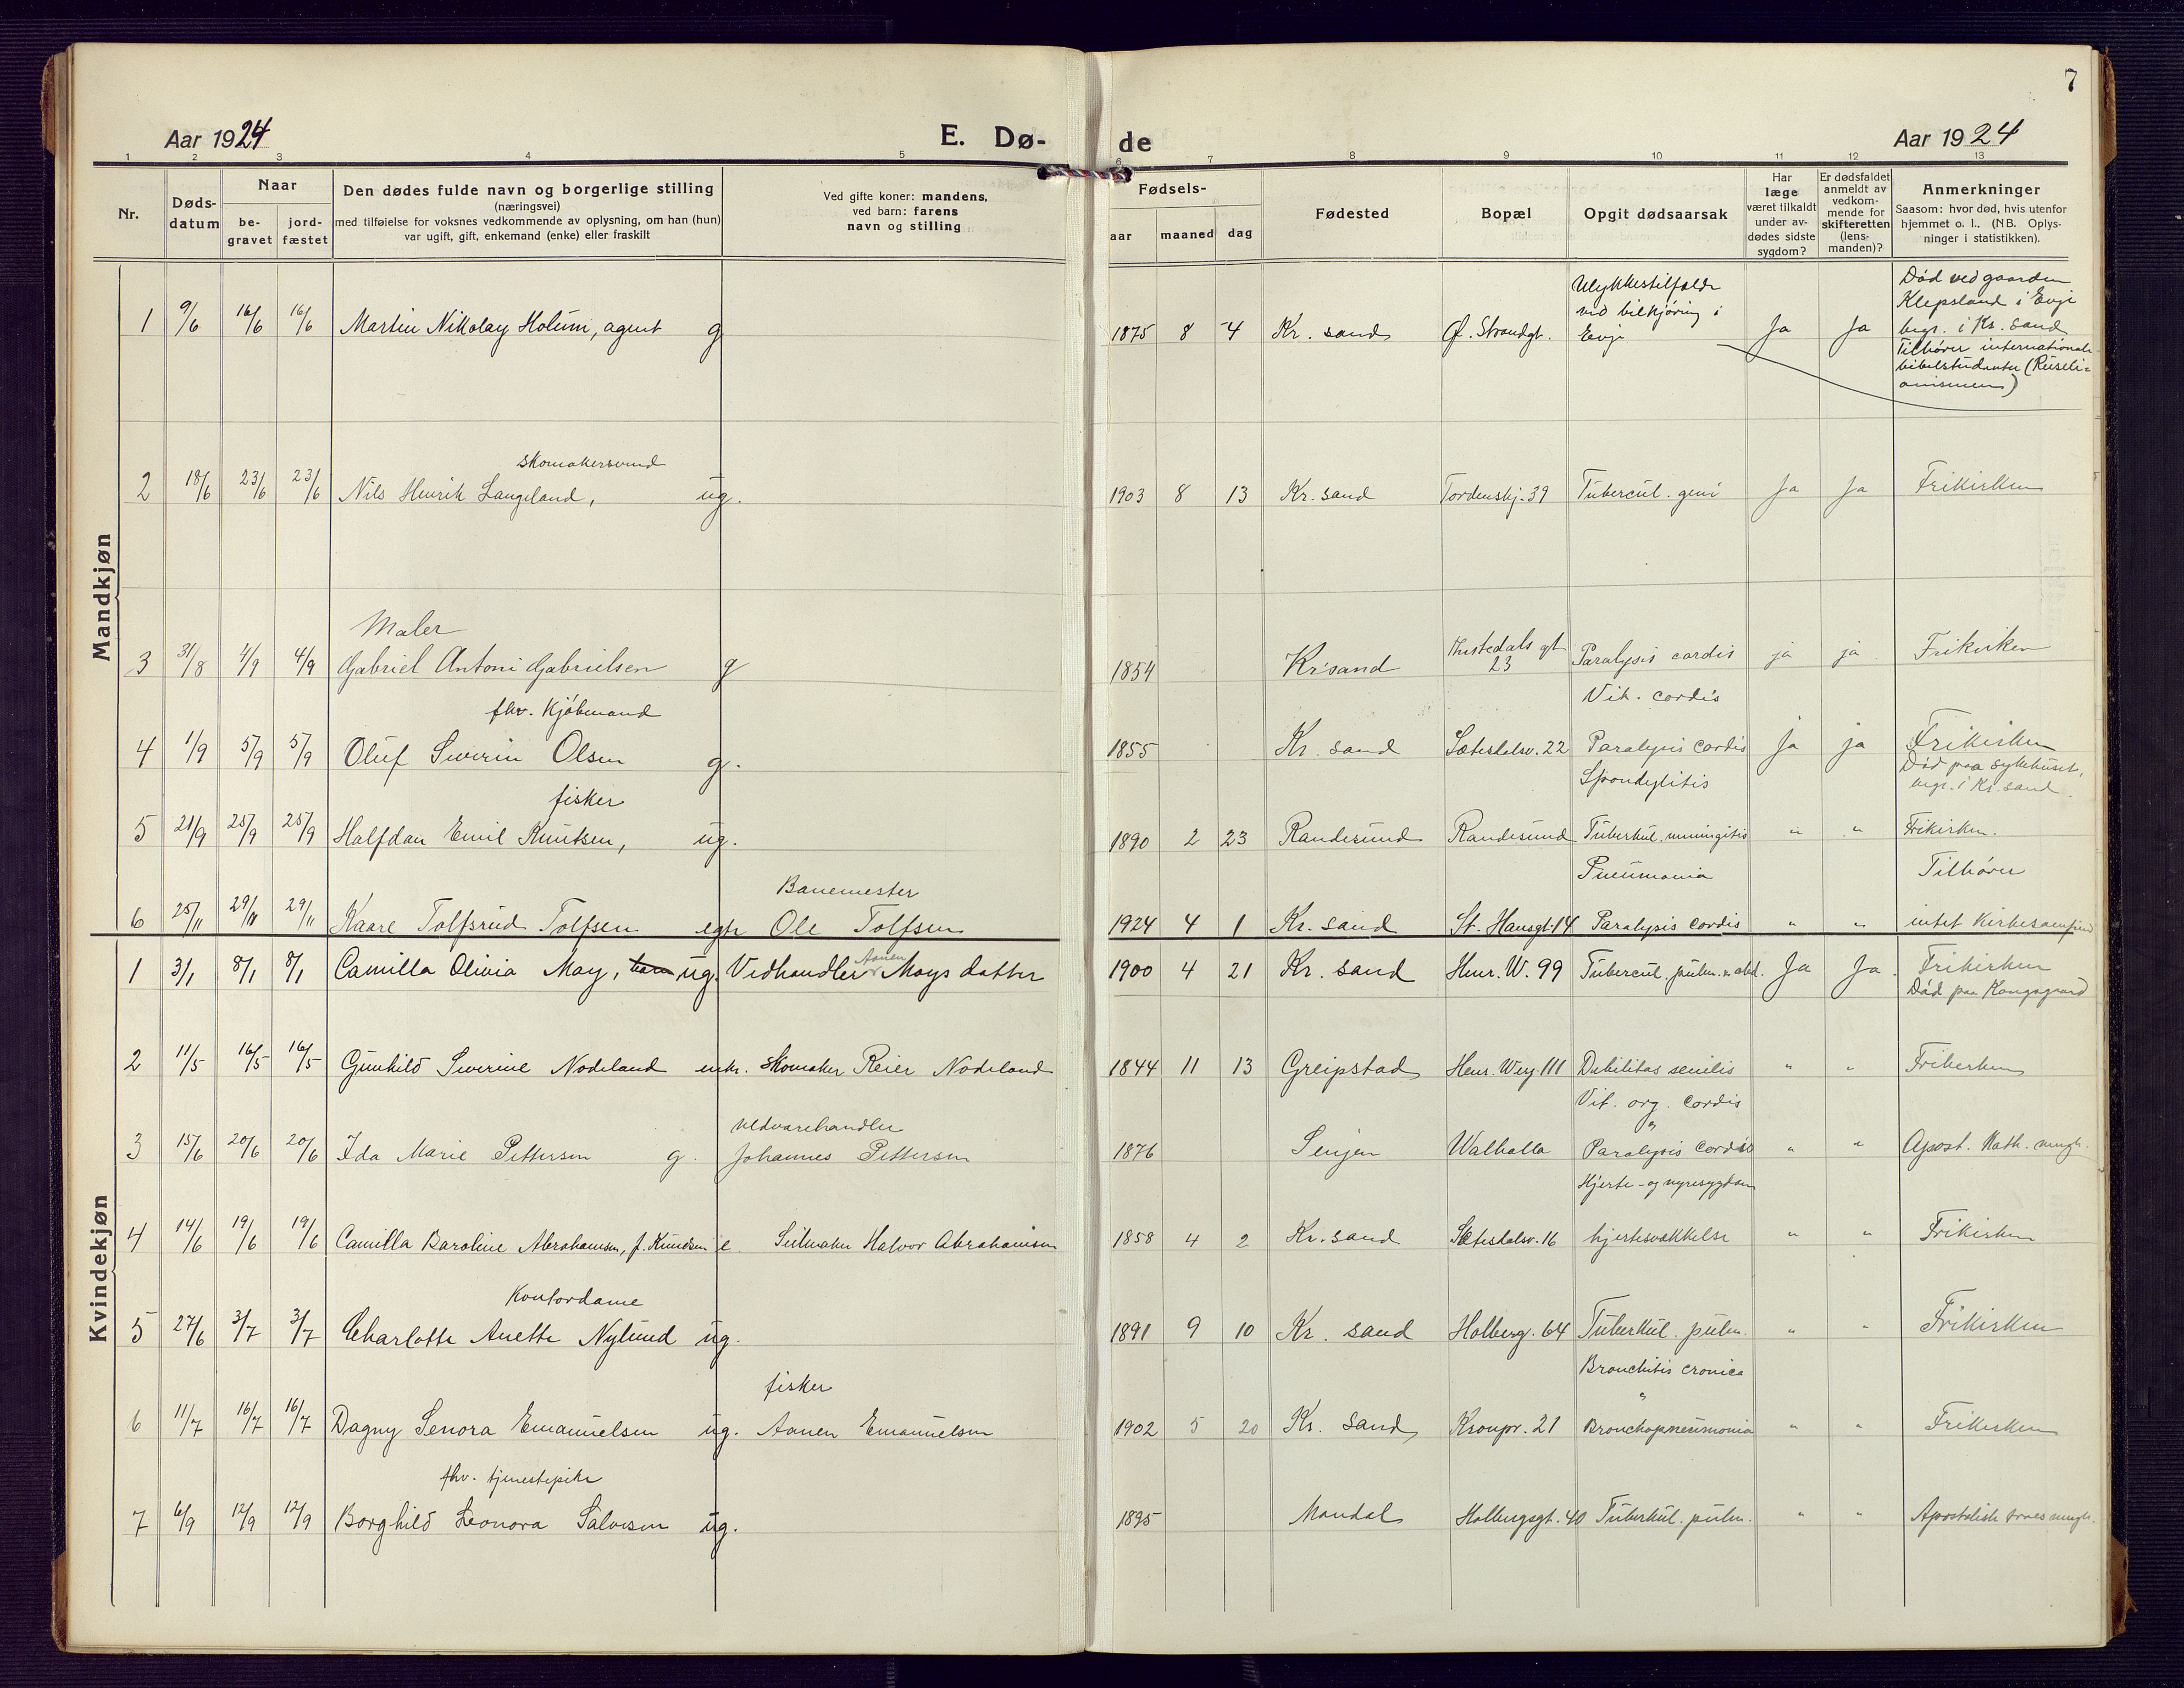 7
Aar 1924 E. Dø- de Aar 1924
1 2 3 4 5 6 7 8 9 10 11 12 13
Nr.
Døds-datum
Naar
be-gravet
jord-fæstet
Den dødes fulde navn og borgerlige stilling
(næringsvei)
med tilføielse for voksnes vedkommende av oplysning, om han (hun)
var ugift, gift, enkemand (enke) eller fraskilt
Ved gifte koner: mandens,
ved barn: farens
navn og stilling
Fødsels-
aar maaned dag
Fødested
Bopæl
Opgit dødsaarsak
Har
læge
været tilkaldt
under av-
dødes sidste
sygdom?
Er dødsfaldet
anmeldt av
vedkom-
mende for
skifteretten
(lens-
manden)?
Anmerkninger
Saasom: hvor død, hvis utenfor
hjemmet o. l., (NB. Oplys-
ninger i statistikken).
Mandkjøn
1 9/6 16/6 16/6 Martin Nikolay Holum, agent g 1875 8 4 Kr. sand Ø. Strandgt.
Ulykkestilfælde
ved bilkjøring i
Evje
Ja Ja
Død ved gaarden
Klepsland i Evje
begr. i Kr. sand
Tilhører internationale
bibelstudenter
skomakersvend
2 18/6 23/6 23/6 Nils Henrik Langeland, ug. 1903 8 13 Kr. sand Tordenskj. 39 Tubercul. genu Ja Ja Frikirken
Maler
3 31/8 4/9 4/9 Gabriel Antoni Gabrielsen g 1854 Kr.sand
23 Paralysis cordis ja ja Frikirken
fhv. Kjøbmand Vit. cordis
4 1/9 5/9 5/9 Oluf Severin Olsen g. 1855 Kr. sand Sætesdalsv. 22 Paralysis cordis ja ja Frikirken
Død paa sykehuset,
begr. i Kr. sand.
fisker Spondylitis
5 21/9 25/9 25/9 Halfdan Emil Knutsen, ug. 1890 2 23 Randesund Randesund Tuberkul. meningitis " " Frikirken.
Banemester Pneumonia Tilhører
6 25/11 29/11 29/11 Kaare Tolfsrud Tolfsen egte Ole Tolfsen 1924 4 1 Kr. sand St. Hansgt. 14 Paralysis cordis " " intet kirkesamfund
Kvindekjøn
Aanen
1 3/1 8/1 8/1 Camilla Olivia May, barn ug. Vedhandler Mays datter 1900 4 21 Kr. sand Henr. W. 99 Tubercul. pulm. & abd. Ja Ja. Frikirken
Død paa Kongsgaard
2 11/5 16/5 16/5 Gunhild Severine Nodeland enke. skomaker Reier Nodeland 1844 11 13 Greipstad Henr. Werg. 111 Debilitas senilis " " Frikirken
vedvarehandler Vit. org. cordis
3 15/6 20/6 20/6 Ida Marie Pettersen g. Johannes Pettersen 1876 Senjen Walhalla Paralysis cordis " " Apost. Kath. menigh.
Hjerte- og nyresygdom
4 14/6 19/6 19/6 Camilla Baroline Abrahamsen, f. Knudsen e. Seilmaker Halvor Abrahamsen 1858 4 2 Kr. sand Sætesdalsv. 16 hjertesvækkelse " " Frikirken
Kontordame
5 27/6 3/7 3/7 Charlotte Anette Nylund ug. 1891 9 10 Kr. sand Holberg. 64 Tuberkul. pulm. " " Frikirken
fisker Bronchitis cronica
6 11/7 16/7 16/7 Dagny Senora Emanuelsen ug. Aanen Emanuelsen 1902 5 20 Kr. sand Kronpr. 21 Bronchopneumonia " " Frikirken
fhv. tjenestepike
7 6/9 12/9 12/9 Borghild Leonora Salvesen ug. 1895 Mandal Holbergsgt. 40 Tuberkul. pulm. " " Apostolisk troes menigh.